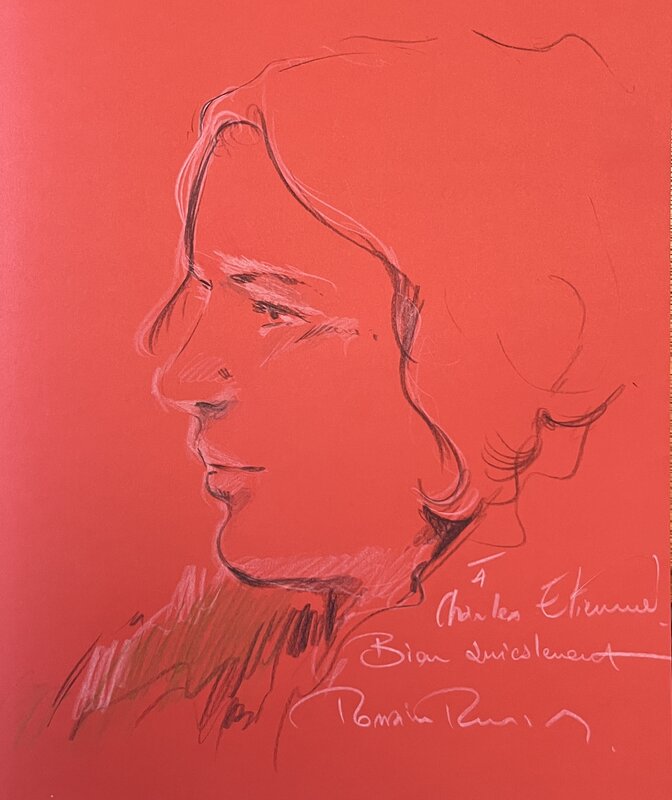 À
Charles Etienne.
Bien amicalement
Romain